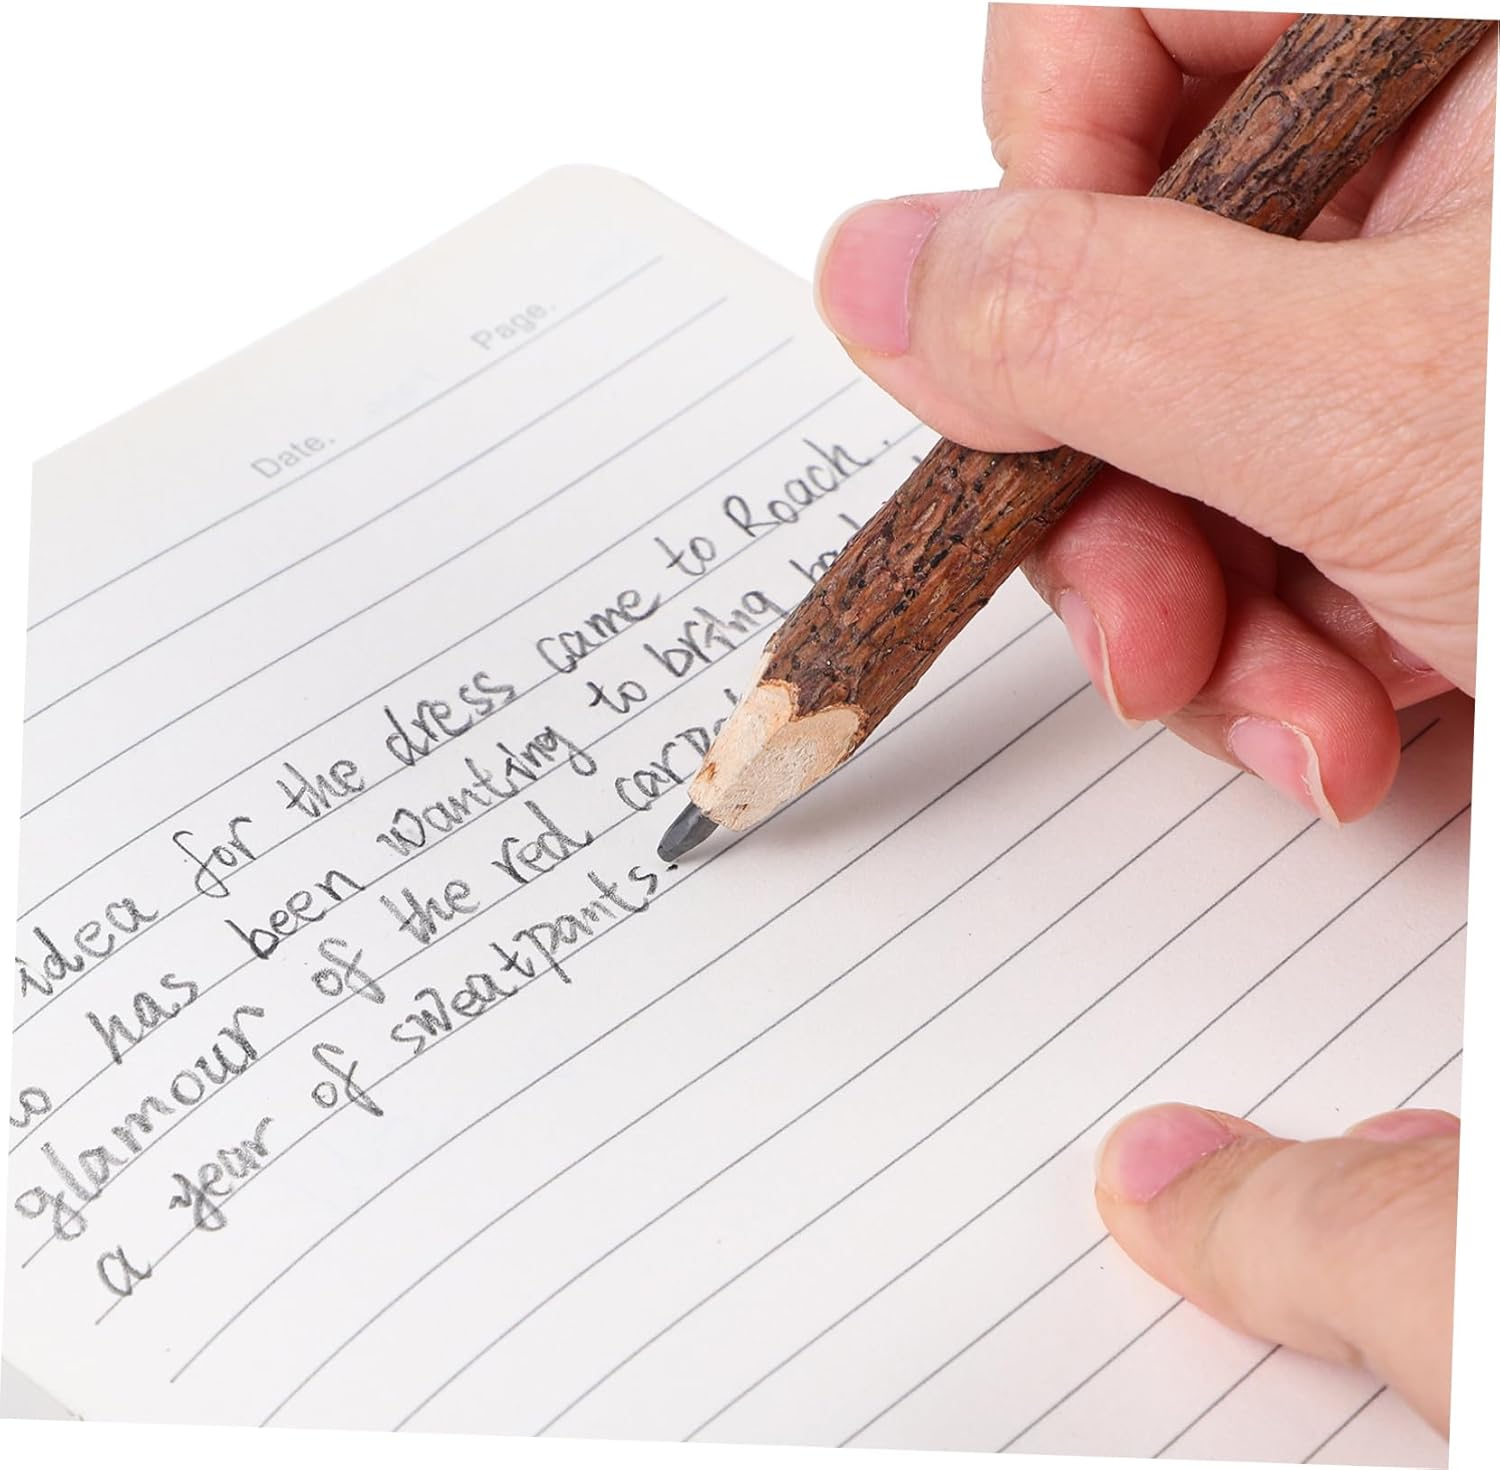 Date. Page.
idea for the dress came to Roach.
has been wanting to bring
glamour of the red
a year of sweatpants.